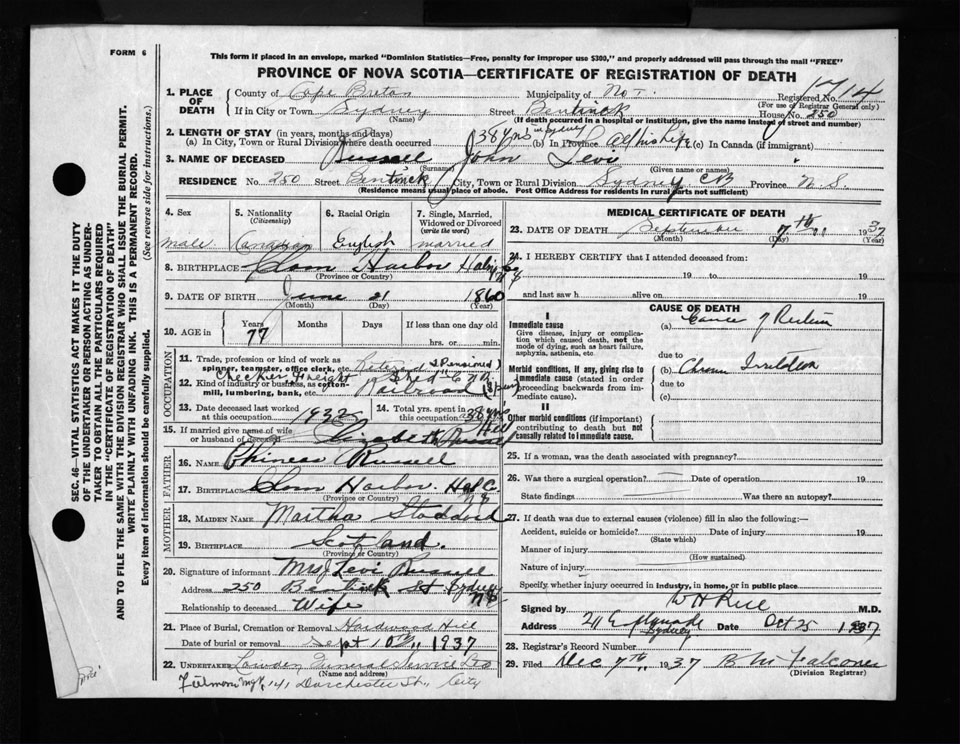 FORM 6
This form if placed in an envelope, marked "Dominion Statistics—Free, penalty for improper use $300," and properly addressed will pass through the mail "FREE"
PROVINCE OF NOVA SCOTIA—CERTIFICATE OF REGISTRATION OF DEATH
1. PLACE OF DEATH County of Cape Breton Municipality of Registered No. 1714
(For use of Registrar General only)
If in City or Town Sydney Street Bentinck House No. 250
(Name) (If death occurred in a hospital or institution, give the name instead of street and number)
2. LENGTH OF STAY (in years, months and days) 38 yrs in Sydney
(a) In City, Town or Rural Division where death occurred (b) In Province All his life (c) In Canada (if immigrant)
3. NAME OF DECEASED Russell John Levi
(Surname) (Given name or names)
RESIDENCE No. 250 Street Bentinck City, Town or Rural Division Sydney CB Province N.S.
(Residence means usual place of abode. Post Office Address for residents in rural parts not sufficient)
4. Sex 5. Nationality (Citizenship) 6. Racial Origin 7. Single, Married, Widowed or Divorced (write the word)
male Canadian English married
8. BIRTHPLACE Clam Harbor
(Province or Country)
9. DATE OF BIRTH June 21 1860
(Month) (Day) (Year)
10. AGE in Years Months Days If less than one day old
77 hrs. or min.
OCCUPATION
11. Trade, profession or kind of work as spinner, teamster, office clerk, etc. Retired & Pensioned
Checker Freight Shed C N R
12. Kind of industry or business, as cotton-mill, lumbering, bank, etc. Railroad
13. Date deceased last worked at this occupation 1932 14. Total yrs. spent in this occupation 38 yrs
15. If married give name of wife or husband of deceased Elizabeth Russell
FATHER
16. NAME Phineas Russell
17. BIRTHPLACE Clam Harbor Hal C. N S
(Province or Country)
MOTHER
18. MAIDEN NAME Martha Stoddard
19. BIRTHPLACE Scotland.
(Province or Country)
20. Signature of informant Mrs J Levi Russell
Address 250 Bentinck St Sydney N S
Relationship to deceased Wife
21. Place of Burial, Cremation or Removal Hardwood Hill
Date of burial or removal Sept 10th 1937
22. UNDERTAKER Lowden Funeral Service Ltd
(Name and address)
141 Dorchester St., City
MEDICAL CERTIFICATE OF DEATH
23. DATE OF DEATH September 7th 1937
(Month) (Day) (Year)
24. I HEREBY CERTIFY that I attended deceased from:
19 to 19
and last saw h alive on 19
CAUSE OF DEATH
I
Immediate cause (a) Cancer of Rectum
Give disease, injury or complication which caused death, not the mode of dying, such as heart failure, asphyxia, asthenia, etc
due to
Morbid conditions, if any, giving rise to immediate cause (stated in order proceeding backwards from immediate cause). (b)
due to
(c)
II
Other morbid conditions (if important) contributing to death but not causally related to immediate cause.
25. If a woman, was the death associated with pregnancy?
26. Was there a surgical operation? Date of operation 19
State findings Was there an autopsy?
27. If death was due to external causes (violence) fill in also the following:—
Accident, suicide or homicide? Date of injury 19
(State which)
Manner of injury
(How sustained)
Nature of injury
Specify, whether injury occurred in industry, in home, or in public place
Signed by M.D.
Address 211 Esplanade Sydney Date Oct 25 1937
28. Registrar's Record Number
29. Filed Dec 7th 1937 B M Falconer
(Division Registrar)
SEC. 46—VITAL STATISTICS ACT MAKES IT THE DUTY
OF THE UNDERTAKER OR PERSON ACTING AS UNDER-
TAKER TO OBTAIN ALL THE PARTICULARS REQUIRED
IN THE "CERTIFICATE OF REGISTRATION OF DEATH"
AND TO FILE THE SAME WITH THE DIVISION REGISTRAR WHO SHALL ISSUE THE BURIAL PERMIT.
WRITE PLAINLY WITH UNFADING INK. THIS IS A PERMANENT RECORD.
Every item of information should be carefully supplied. (See reverse side for instructions.)